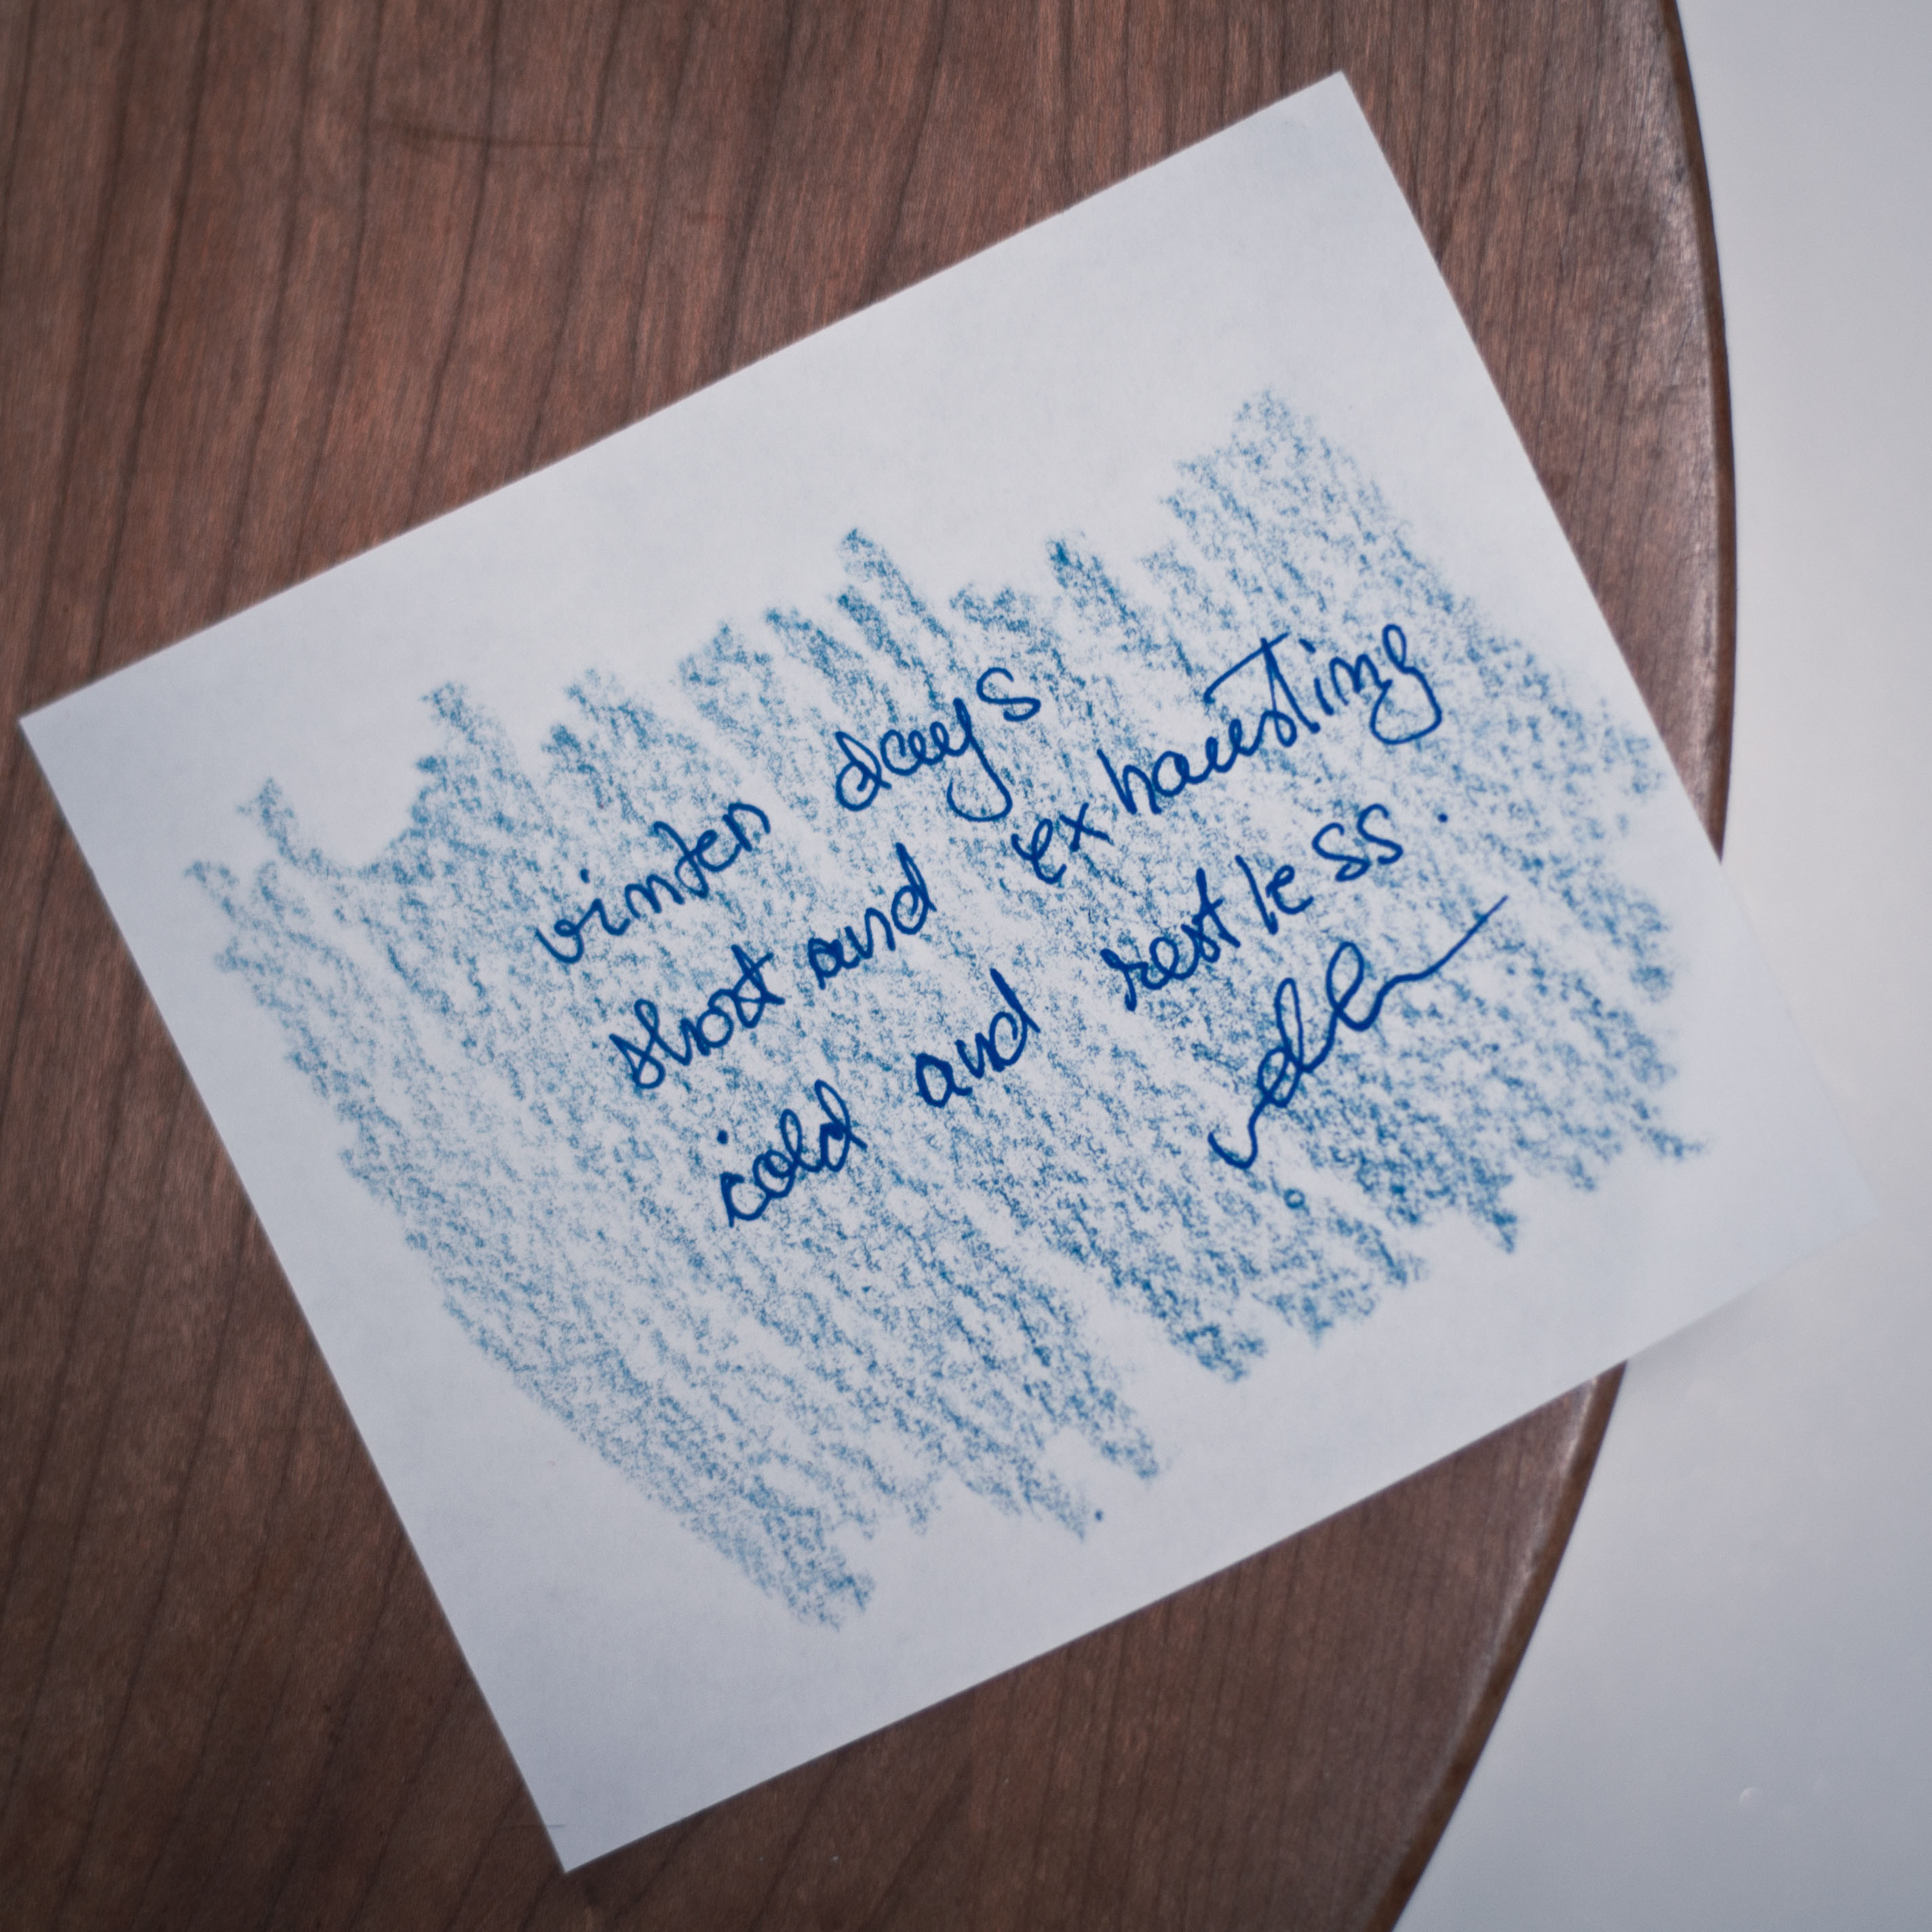 winter days
short and exhausting
cold and restless.